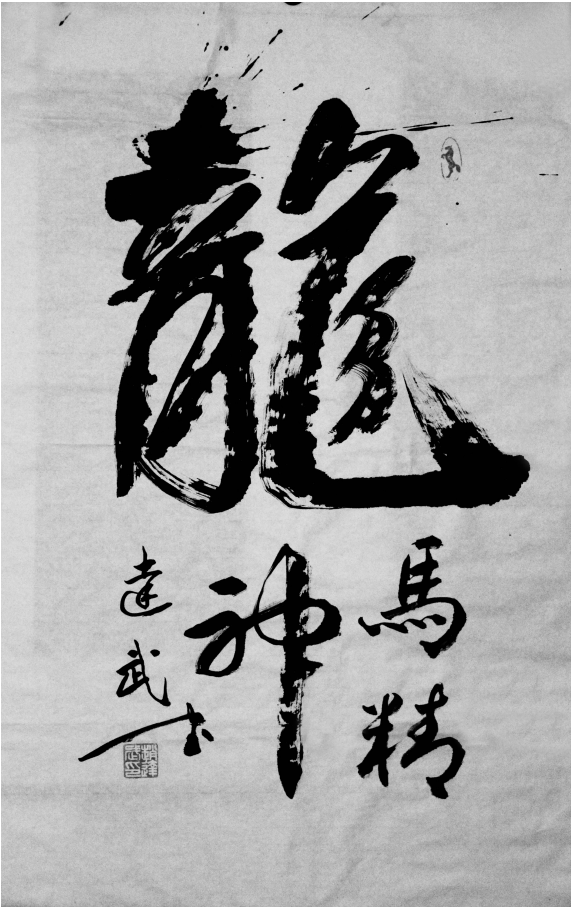 龍
馬精
神
達武书